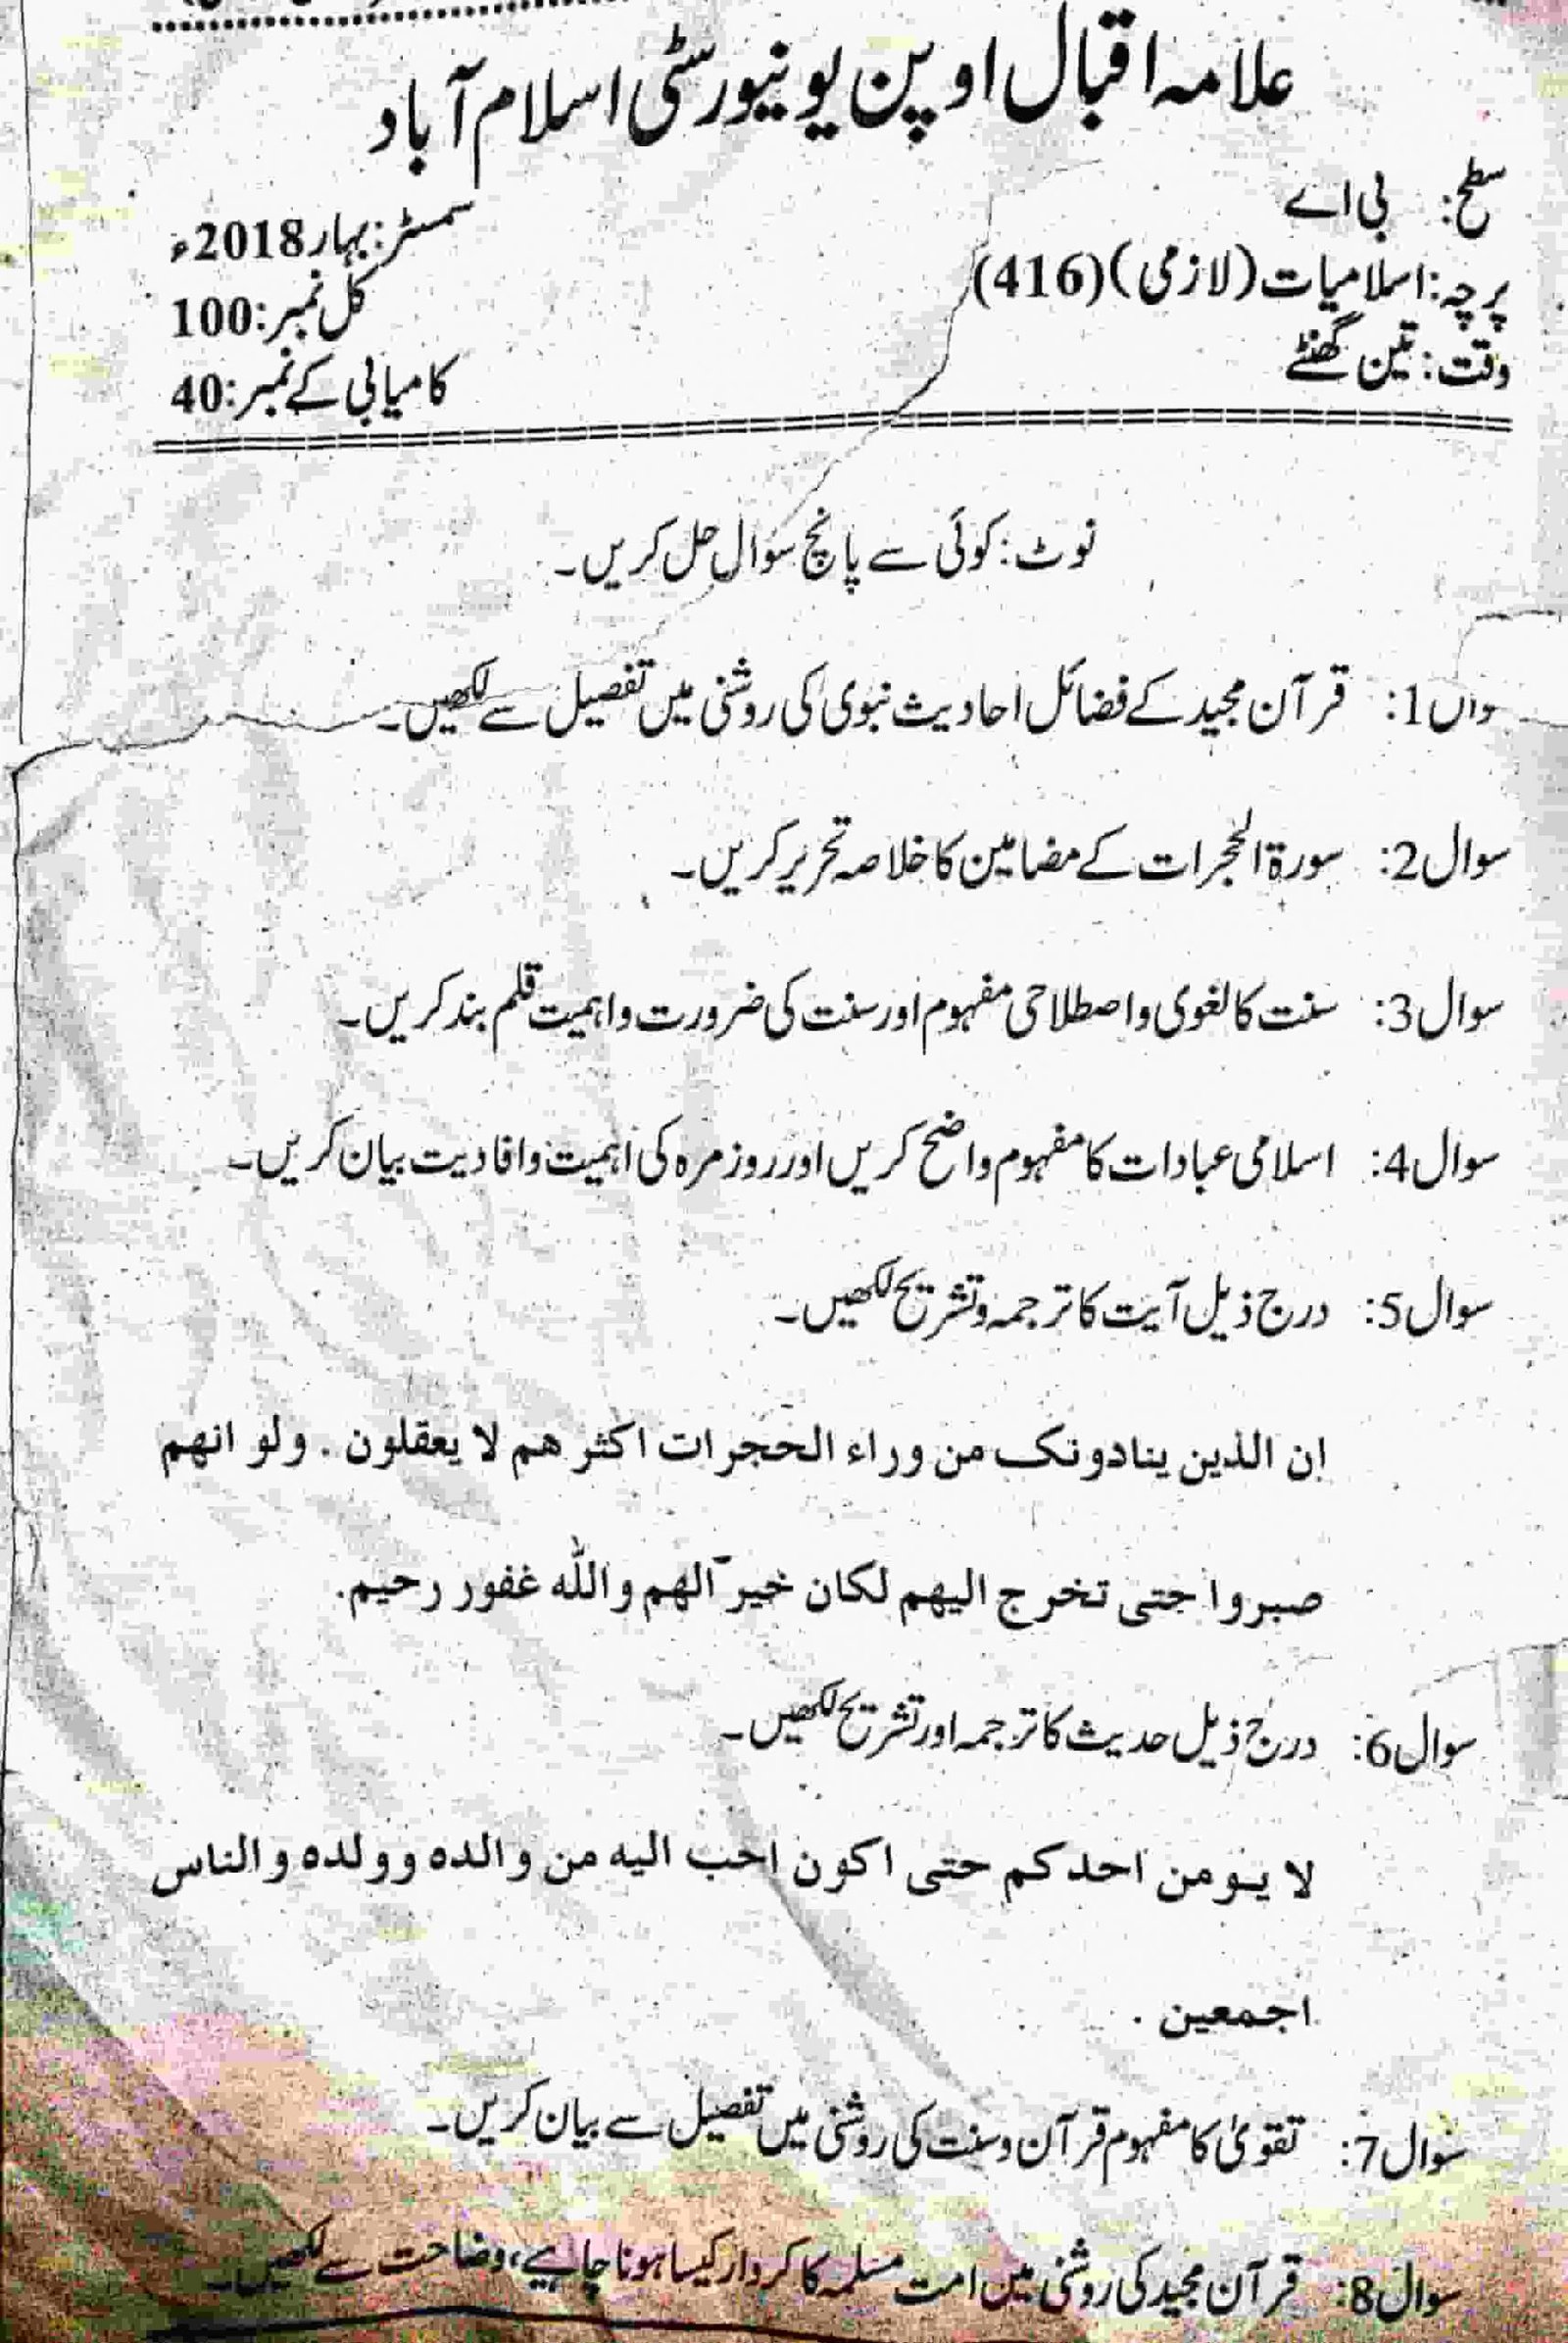 علامہ اقبال اوپن یونیورسٹی اسلام آباد
سطح: بی اے
سمسٹر: بہار 2018ء
پرچہ: اسلامیات (لازمی) (416)
کل نمبر: 100
وقت: تین گھنٹے
کامیابی کے نمبر: 40
نوٹ: کوئی سے پانچ سوال حل کریں۔
وال 1: قرآن مجید کے فضائل احادیث نبوی کی روشنی میں تفصیل سے لکھیں۔
سوال 2: سورۃ الحجرات کے مضامین کا خلاصہ تحریر کریں۔
سوال 3: سنت کا لغوی و اصطلاحی مفہوم اور سنت کی ضرورت و اہمیت قلم بند کریں۔
سوال 4: اسلامی عبادات کا مفہوم واضح کریں اور روزمرہ کی اہمیت و افادیت بیان کریں۔
سوال 5: درج ذیل آیت کا ترجمہ و تشریح لکھیں۔
ان الذین ینادونک من وراء الحجرات اکثر هم لا یعقلون . ولو انهم
صبروا حتی تخرج الیهم لکان خیر آلهم والله غفور رحیم.
سوال 6: درج ذیل حدیث کا ترجمہ اور تشریح لکھیں۔
لا یومن احدکم حتی اکون احب الیه من والده وولده والناس
اجمعین .
سوال 7: تقویٰ کا مفہوم قرآن و سنت کی روشنی میں تفصیل سے بیان کریں۔
سوال 8: قرآن مجید کی روشنی میں امت مسلمہ کا کردار کیسا ہونا چاہیے، وضاحت سے لکھیں۔